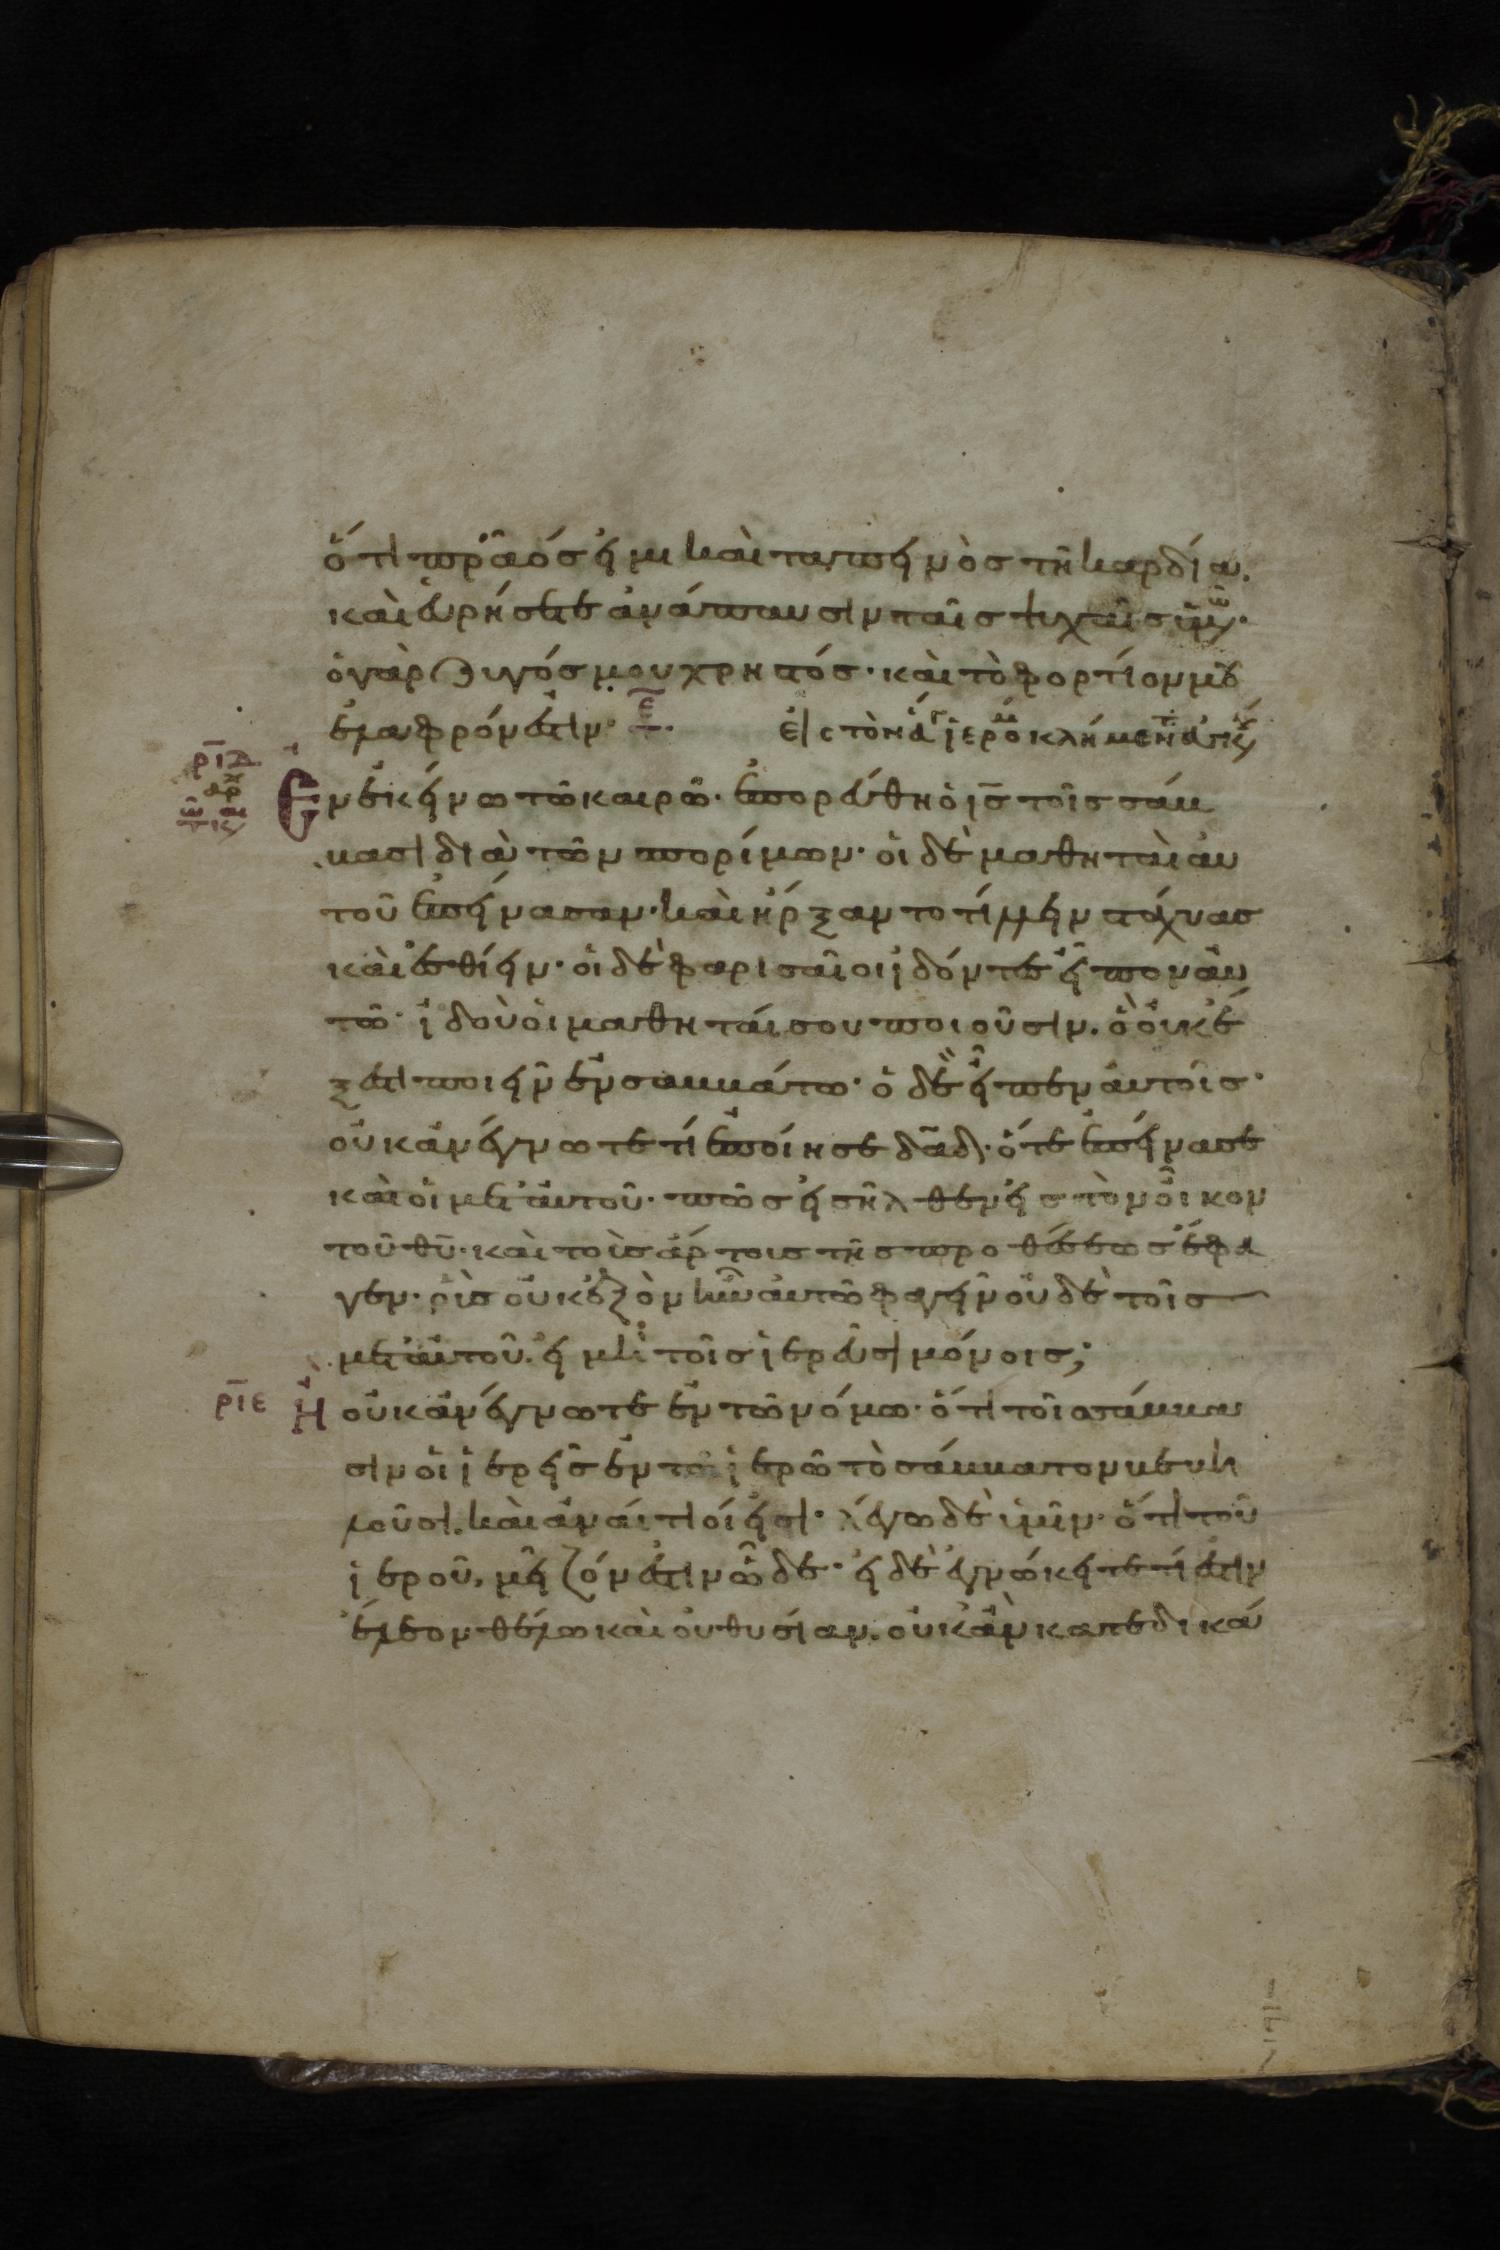 ὅτι πρᾶός εἰμι καὶ ταπεινὸς τῆ καρδία.
καὶ εὑρήσετε ἀνάπαυσιν ταῖς ψυχαῖς ὑμῶν·
ὁ γὰρ ζυγός μου χρηστός· καὶ τὸ φορτίον μου
ἐλαφρόν ἐστιν·
ριδ
Ἐν ἐκείνω τῶ καιρῶ· ἐπορεύθη ὁ ις τοῖς σάβ
βασι διὰ τῶν σπορίμων· οἱ δὲ μαθηταὶ αὐ
τοῦ ἐπείνασαν· καὶ ἤρξαντο τίλλειν στάχυας
καὶ ἐσθίειν· οἱ δὲ φαρισαῖοι ἰδόντες εἶπον αὐ
τῶ· ἰδοὺ οἱ μαθηταί σου ποιοῦσιν. ὃ οὐκ ἔ
ξεστι ποιεῖν ἐν σαββάτω· ὁ δὲ εἶπεν αὐτοῖς·
οὐκ ἀνέγνωτε τί ἐποίησε δαδ· ὅτε ἐπείνασε
καὶ οἱ μετ' αὐτοῦ· πῶς εἰσῆλθεν εἰς τὸν οἶκον
τοῦ θυ· καὶ τοὺς ἄρτους τῆς προθέσεως ἔφα
γεν· οὓς οὐκ ἐξὸν ἦν αὐτῶ φαγεῖν οὐδὲ τοῖς
μετ' αὐτοῦ. εἰ μὴ τοῖς ἱερεῦσι μόνοις;
ριε
Ἢ οὐκ ἀνέγνωτε ἐν τῶ νόμω· ὅτι τοῖς σάββα
σιν οἱ ἱερεῖς ἐν τῶ ἱερῶ τὸ σάββατον βεβη
λοῦσι. καὶ ἀναίτιοί εἰσι· λέγω δὲ ὑμῖν· ὅτι τοῦ
ἱεροῦ, μεῖζόν ἐστιν ὧδε· εἰ δὲ ἐγνώκειτε τί ἐστιν
ἔλεον θέλω καὶ οὐ θυσίαν. οὐκ ἂν κατεδικά